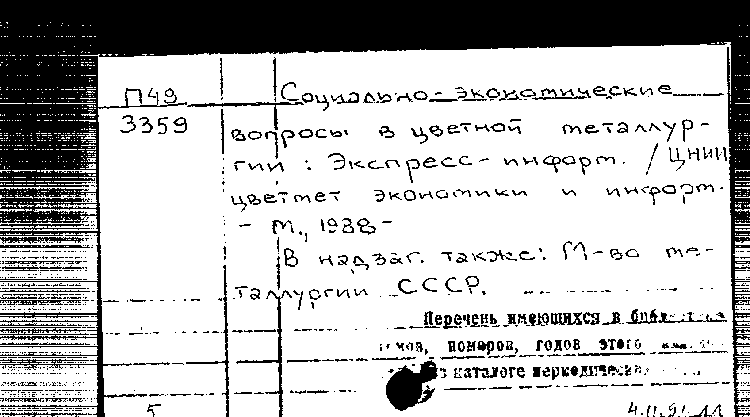 П49 Социально-экономические
3359 вопросы в цветной металлур-
гии : Экспресс-информ. / ЦНИИ
цветмет экономики и информ.
- М., 1988-
В надзаг. также: М-во ме-
таллургии СССР.
Перечень имеющихся в
номеров, годов этого
каталоге
5